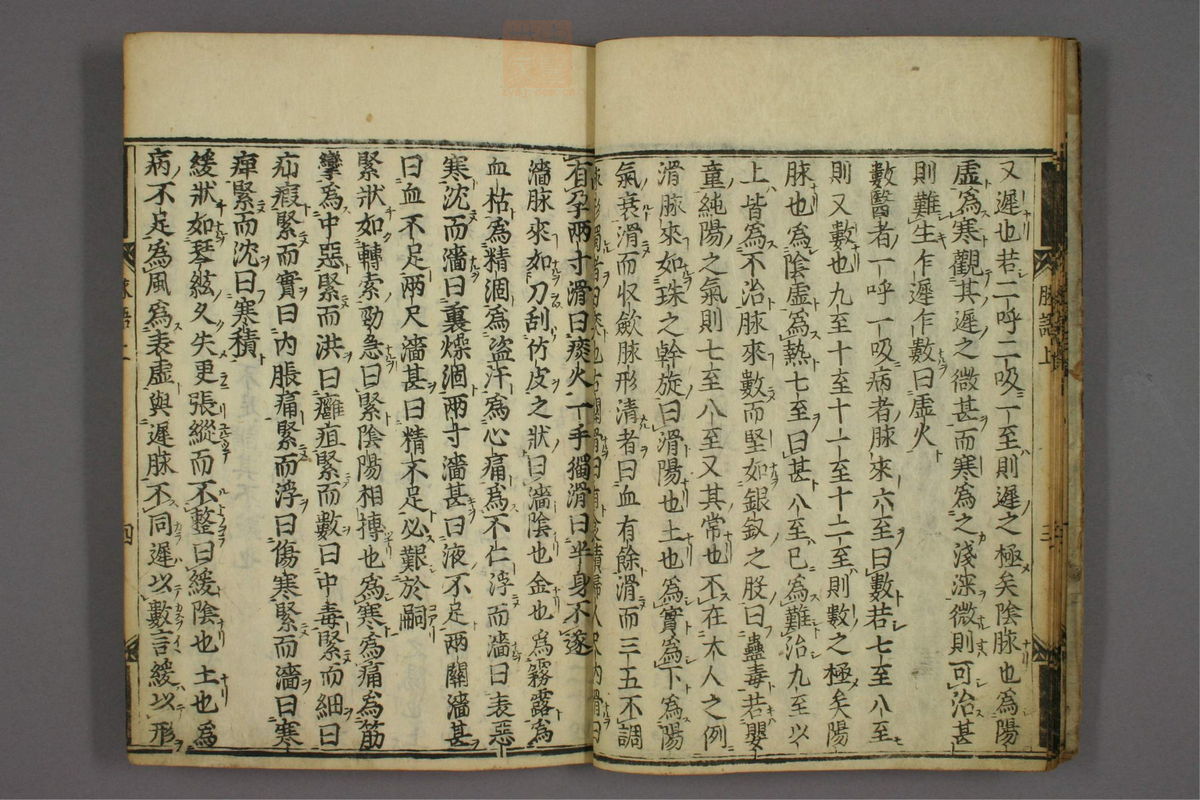 又遲也若二呼二吸一至則遲之極矣陰脉也為陽
虛為寒觀其遲之微甚而寒為之淺深微則可治甚
則難生乍遲乍數曰虛火
數醫者一呼一吸病者脉來六至曰數若七至八至
則又數也九至十至十一至十二至則數之極矣陽
脉也為陰虛為熱七至曰甚八至已為難治九至以
上皆為不治脉來數而堅如銀釵之股曰蠱毒若嬰
童純陽之氣則七至八至又其常也不在大人之例
滑脉來如珠之幹旋曰滑陽也土也為實為下為陽
氣衰滑而収斂脉形清者曰血有餘滑而三五不調
有孕兩寸滑曰痰火一手獨滑曰半身不遂
濇脉來如刀刮竹皮之狀曰濇陰也金也為霧露為
血枯為精涸為盗汗為心痛為不仁浮而濇曰表惡
寒沈而濇曰裏燥涸兩寸濇甚曰液不足兩關濇甚
曰血不足兩尺濇甚曰精不足必艱於嗣
緊狀如轉索勁急曰緊陰陽相搏也為寒為痛為筋
攣為中惡緊而洪曰癰疽緊而數曰中毒緊而細曰
疝瘕緊而實曰内脹痛緊而浮曰傷寒緊而濇曰寒
痺緊而沈曰寒積
緩狀如琴絃久失更張縱而不整曰緩陰也土也為
病不足為風為表虛與遲脉不同遲以數言緩以形
脉語上
三
四